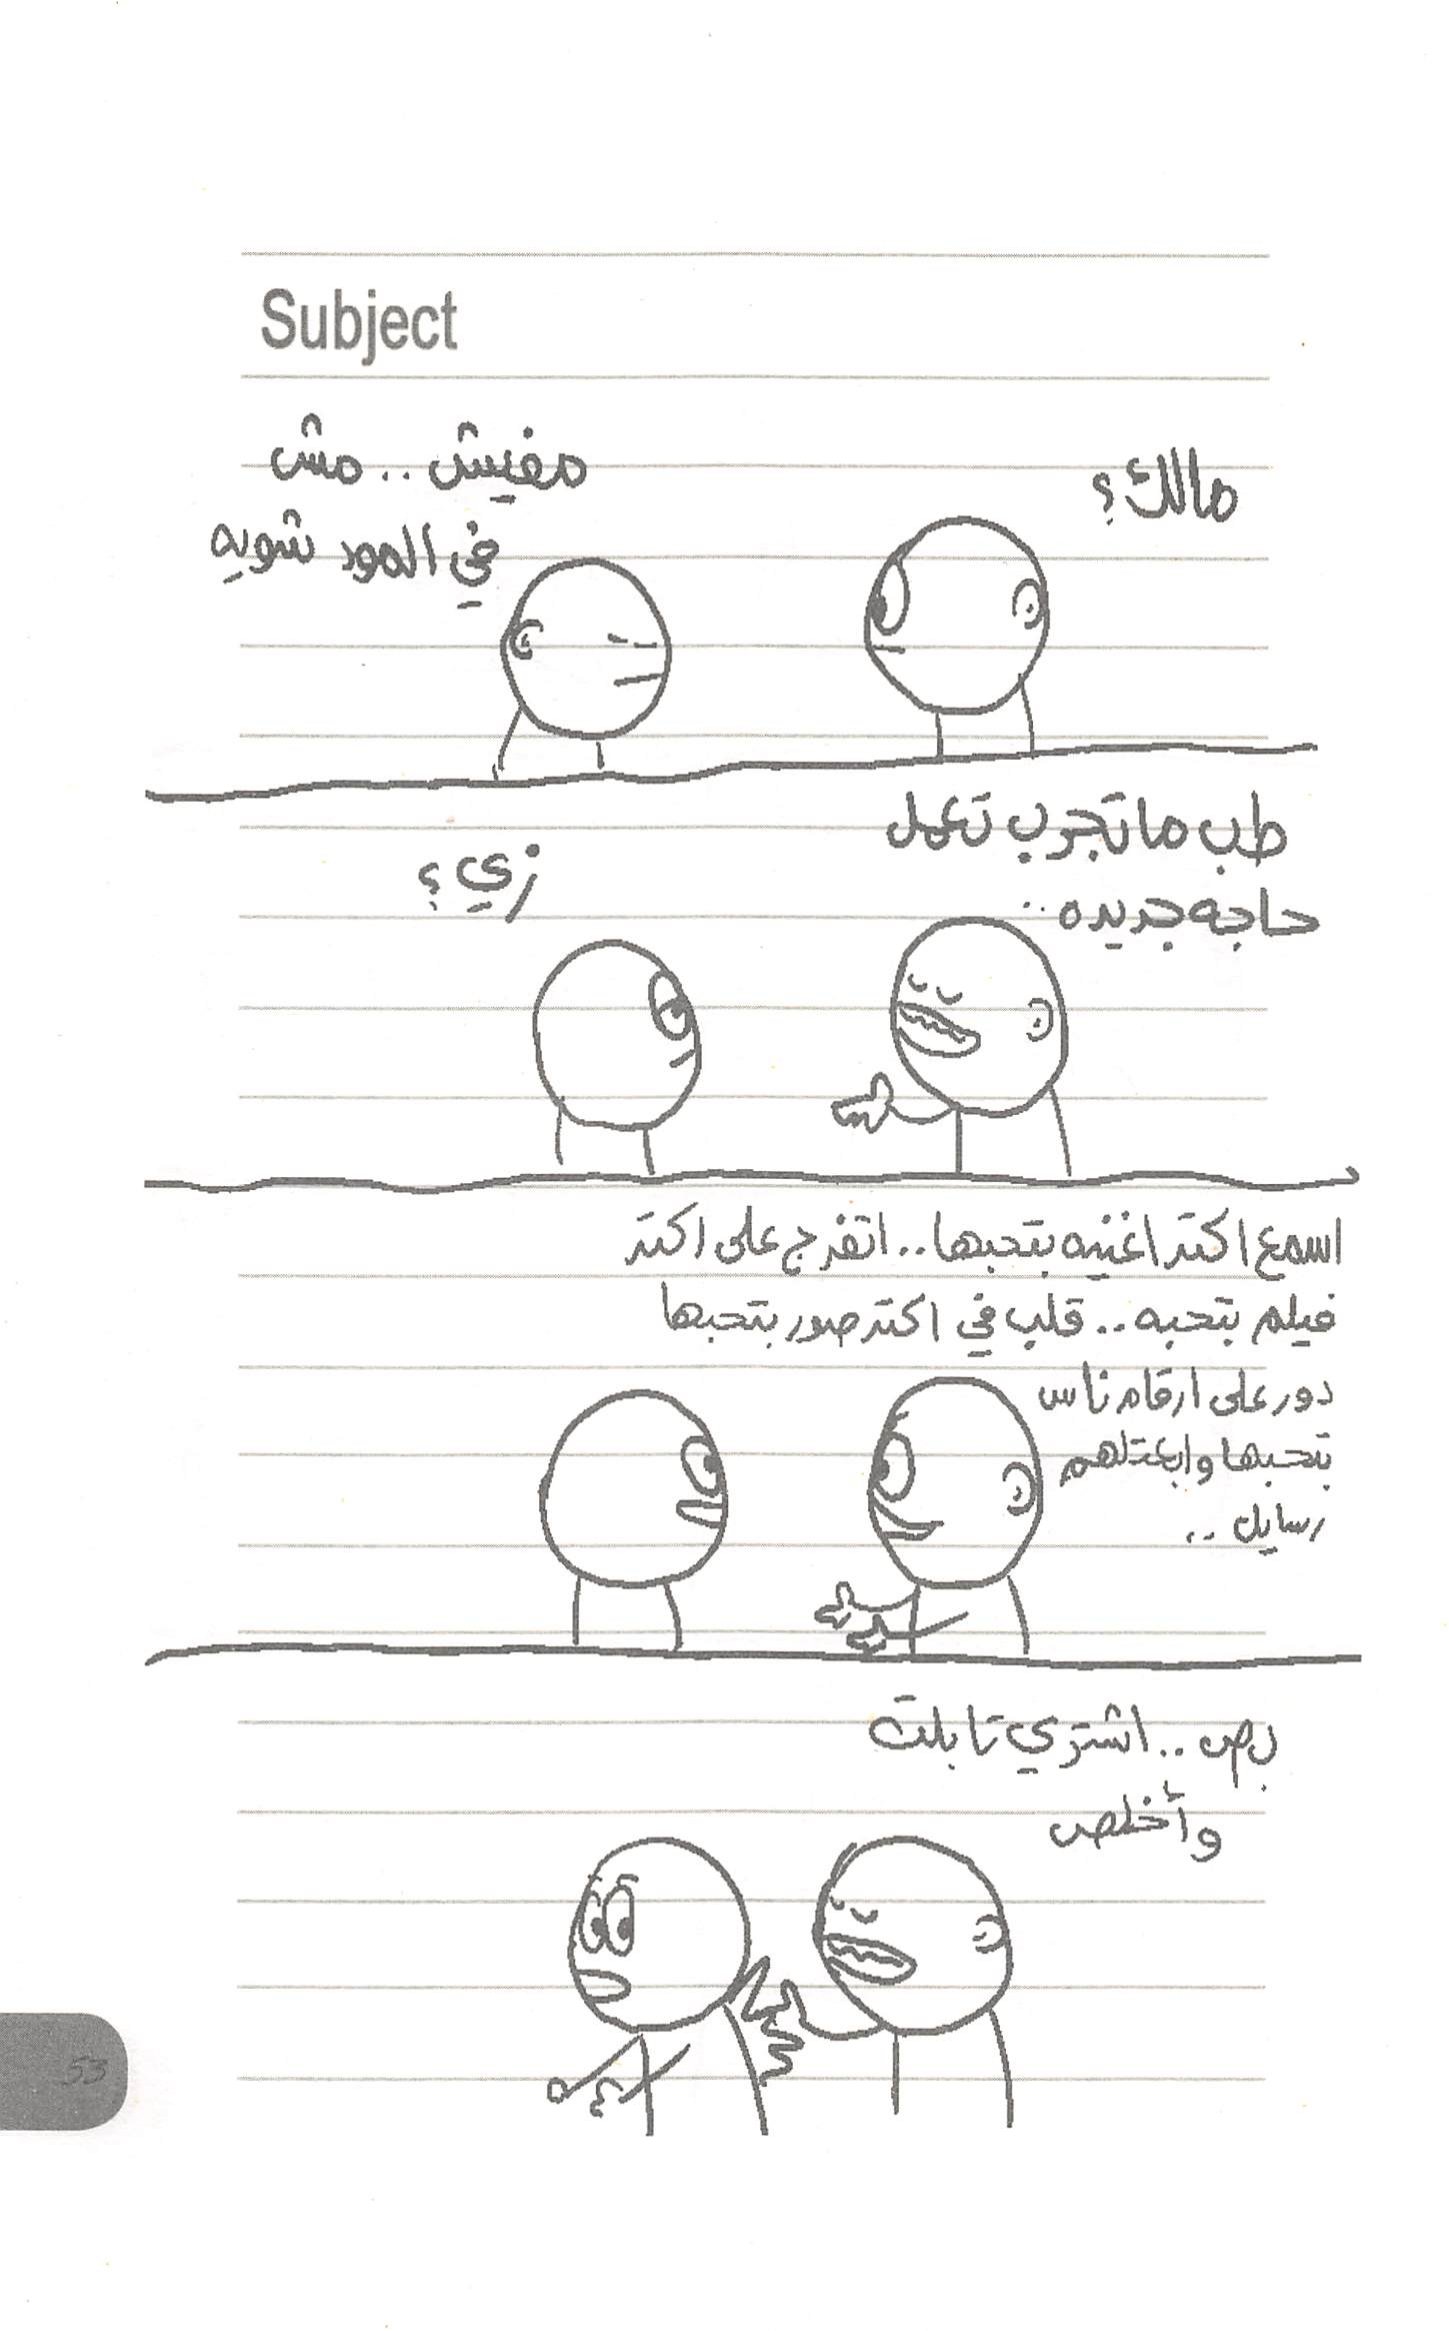 Subject
مالك؟
مفيش.. مش
في المود شويه
طب ما تجرب تعمل
حاجه جديده..
زي؟
اسمع اكتر اغنيه بتحبها.. اتفرج على اكتر
فيلم بتحبه.. قلب في اكتر صور بتحبها
دور على ارقام ناس
بتحبها وابعتلهم
رسايل..
بص.. اشتري تابلت
وأخلص
53